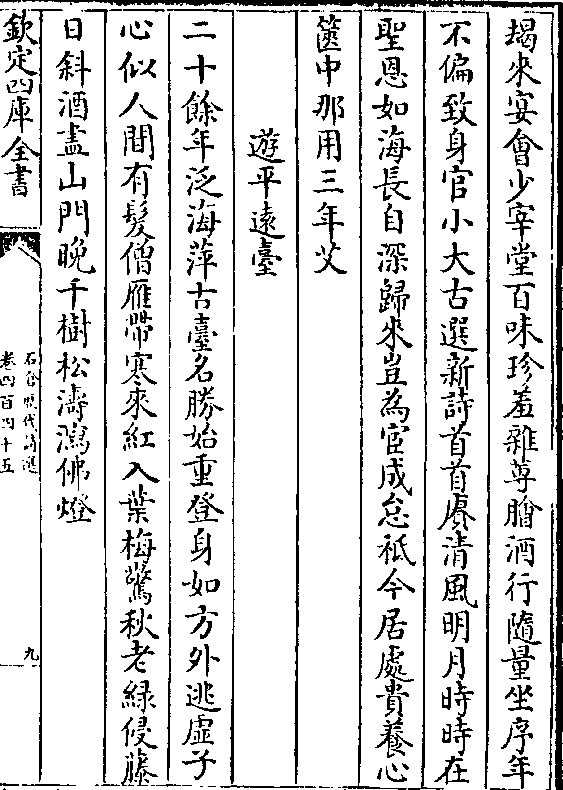 朅來宴會少宰堂百味珍羞雜蓴膾酒行隨量坐序年
不偏致身官小大古選新詩首首賡清風明月時時在
聖恩如海長自深歸來豈為宦成怠祗今居處貴養心
篋中那用三年艾
遊平遠臺
二十餘年泛海萍古臺名勝始重登身如方外逃虛子
心似人間有髮僧雁帶寒來紅入葉梅驚秋老緑侵藤
日斜酒盡山門晚千樹松濤瀉佛燈
欽定四庫全書
石倉歴代詩選
卷四百四十五
九